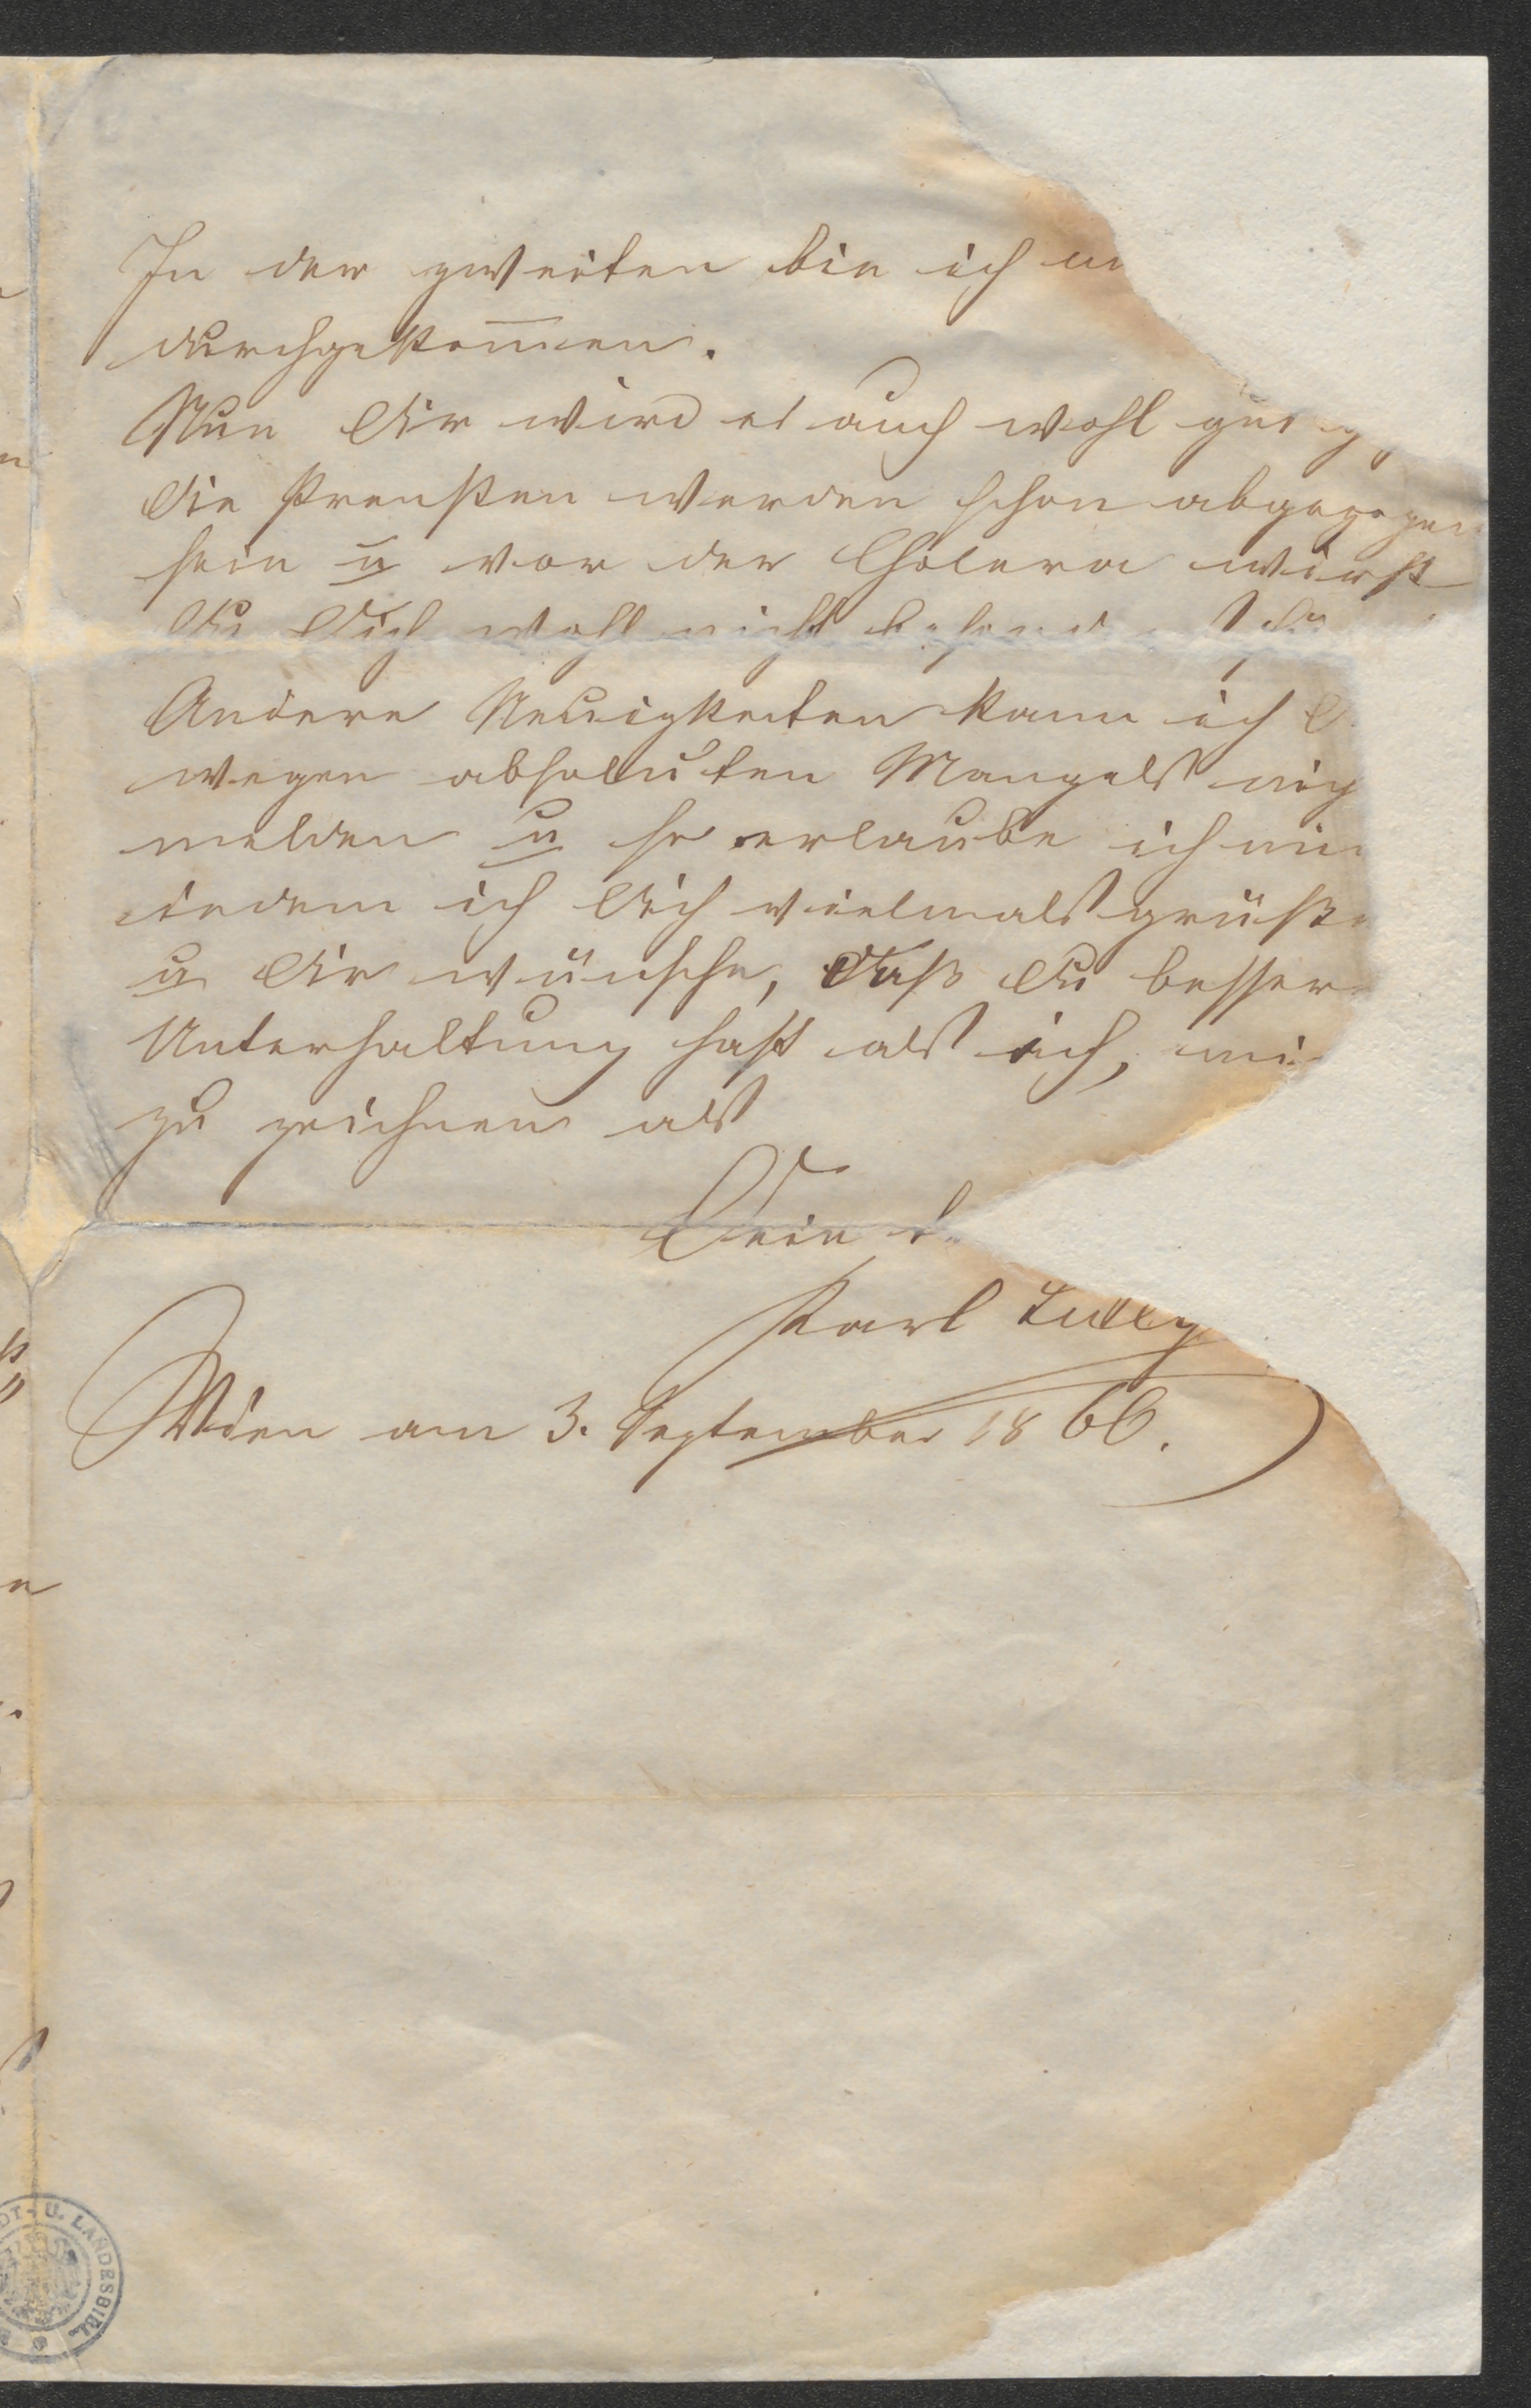 In der zweiten bin ich
durchgekom̅en.
Nun Dir wird es auch wohl gut
die Preußen werden schon abgezogen
sein u vor der Cholera wirst
Du Dich wohl nicht
Andere Neuigkeiten kann ich
wegen absoluten Mangels
melden u so erlaube ich
indem ich Dich vielmals grüße
u Dir wünsche, daß Du besser
Unterhaltung hast als ich,
zu zeichnen als
Dein
Karl
Wien am 3. September 1866.
U. LANDESBIBL.